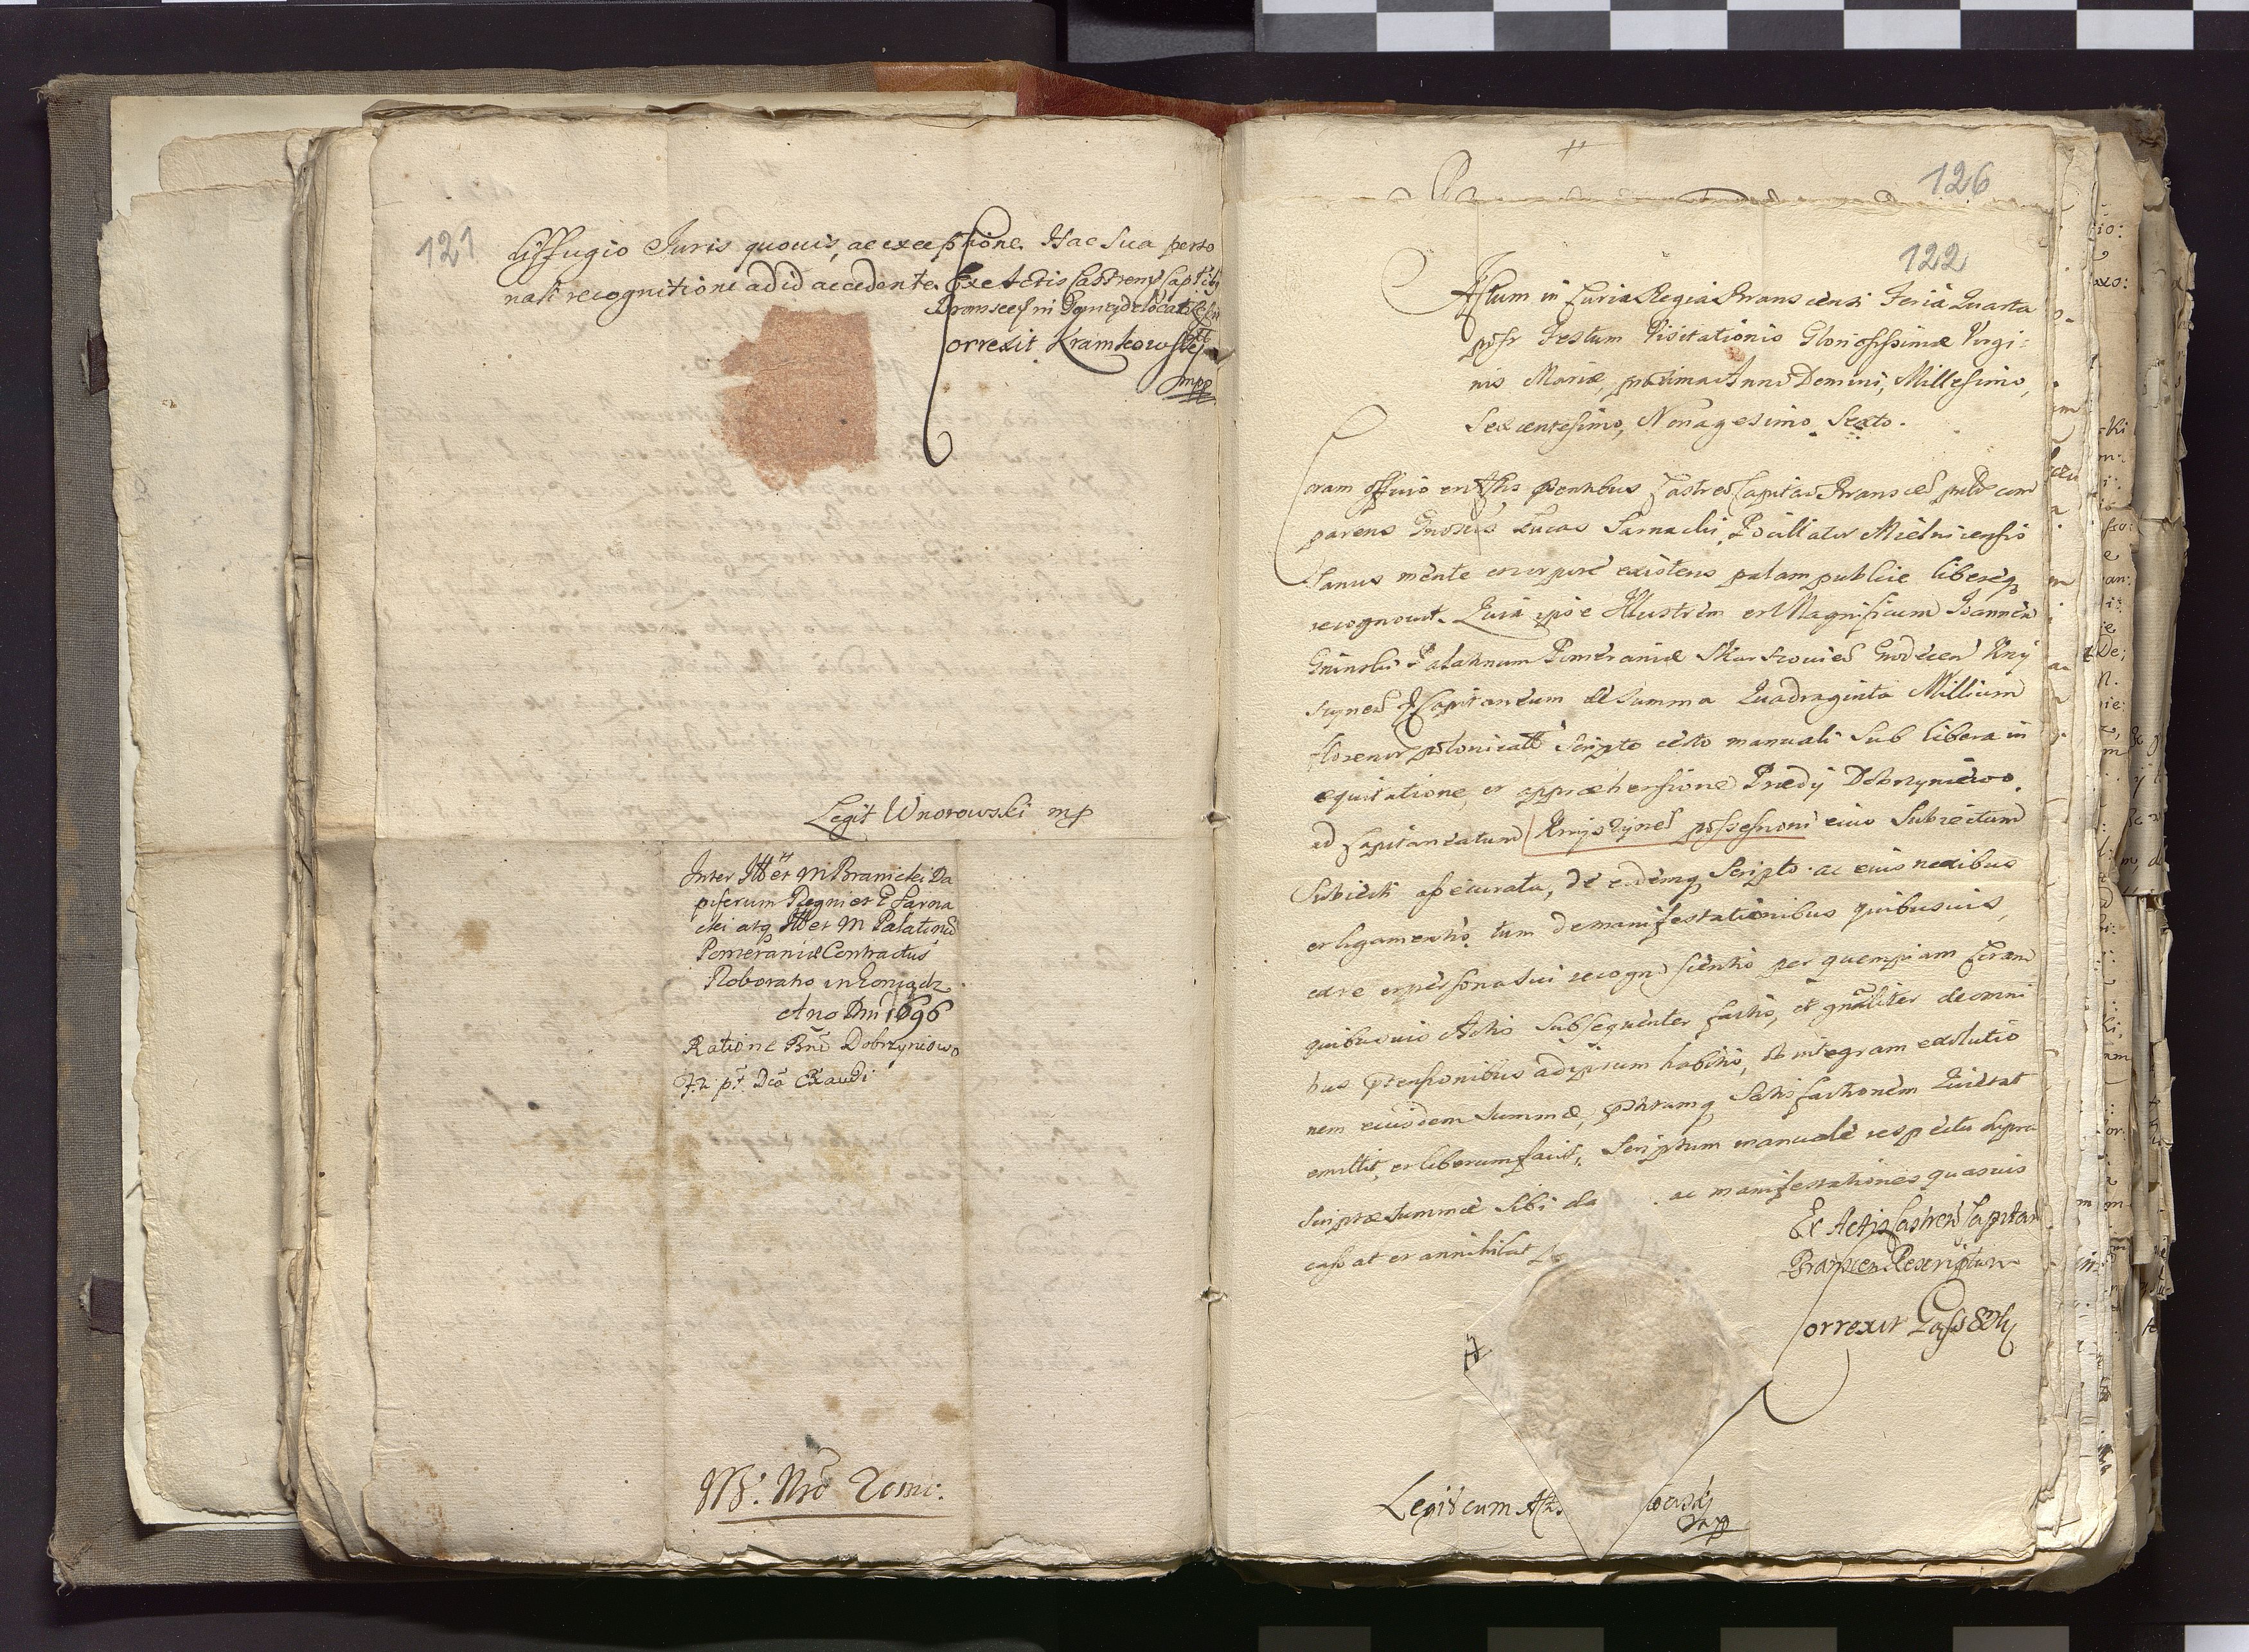 121
diffugio Juris quovis, ac exceptione. Hac sua perso
nali recognitione ad id accedente. Ex Actis Castren Capit
Correxit Kramkowski
mpp
Legit Wnorowski mp
Inter Ill et M Branicki Da
piferum Regni et G Sarna
cki atq Ill et M Palatinū
Pomeraniæ Contractus
Roboratio in Goniądz
Ano Dni 1696
Ratione Bnō Dobrzyniowo
126
122
Actum in Curia Regia Branscensi Feria Quarta
post Festum Visitationis Gloriosissimæ Virgi:
nis Mariæ, proxima Anno Domini, Millesimo,
Sexcentesimo, Nonagesimo Sexto.
Coram officio et Actis pntibus Castren Capitan Branscen psnlr com
parens Gnosus Lucas Sarnacki, Pocillator Mielnicensis
sanus mente et corpore existens palam publice libereq
recognovit. Quia ipse Illustrem et Magnificum Joannem
Gninski Palatinum Pomeraniæ Grodecen Kny
szynen Capitaneum de summa Quadraginta Millium
florenor polonicall scripto certo manuali sub libera in
equitatione, et appræhensione Prædij Dobrzyniewo
ad Capitaneatum Knyszynen possessioni eius subiectum
subiecti assecurata, de eodemq scripto ac eius nexibus
et ligamentis, tum de manifestationibus quibusvis,
care et persona sui recogn scientis per quempiam coram
quibusvis Actis subsequenter factis, et gnaliter de omni
bus ptensionibus ad ipsum habitis, ob integram exolutio
nem eiusdem summæ, satisfactionem Quietat
emittit, et liberum facit, Scriptum manuale respectu supra
scriptæ summæ sibi da ac manifestationes quasvis
cassat et annihilat
Ex Actis Castren Capitan
Branscen Rescriptum
Correxit
Legit cum Actis
mpp